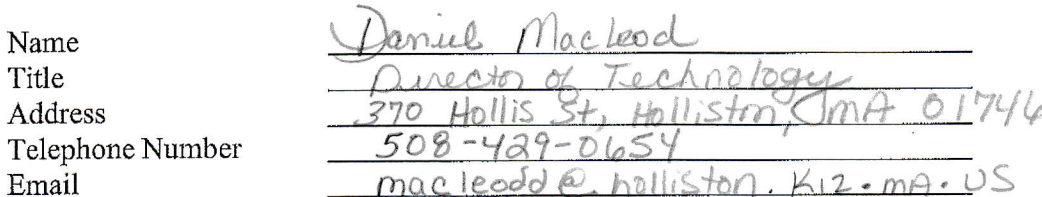 Name Daniel MacLeod
Title Director of Technology
Address 370 Hollis St, Holliston, MA 01746
Telephone Number 508-429-0654
Email macleodd@holliston.K12.mA.US